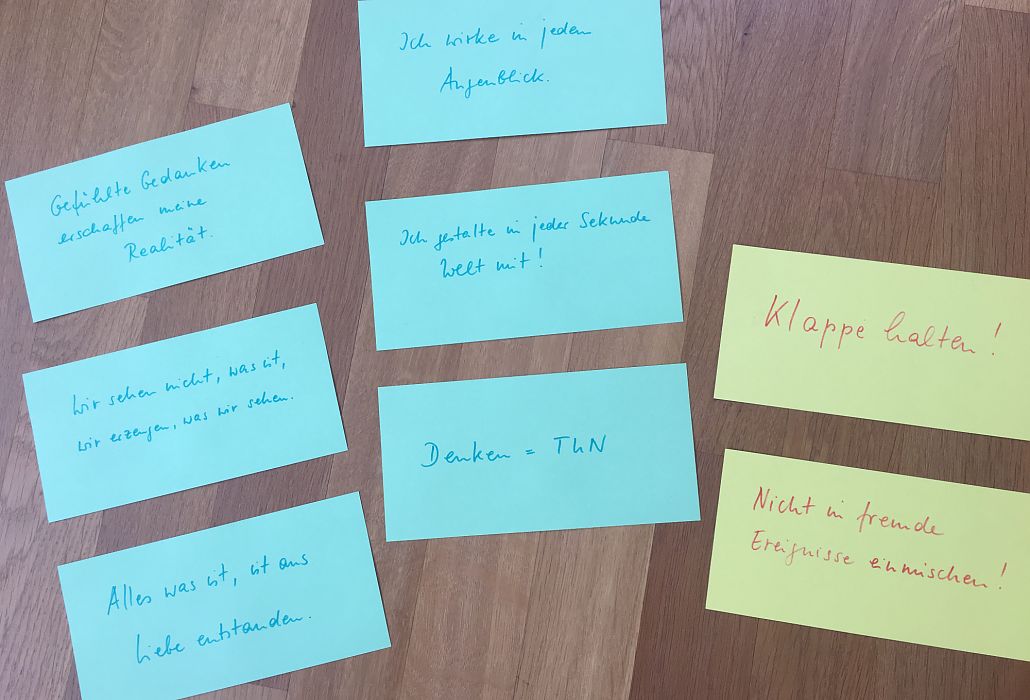 Ich wirke in jedem
Augenblick.
Gefühlte Gedanken
erschaffen meine
Realität.
Ich gestalte in jeder Sekunde
Welt mit!
Klappe halten!
Wir sehen nicht, was ist,
wir erzeugen, was wir sehen.
Denken = ThN
Nicht in fremde
Ereignisse einmischen!
Alles was ist, ist aus
Liebe entstanden.